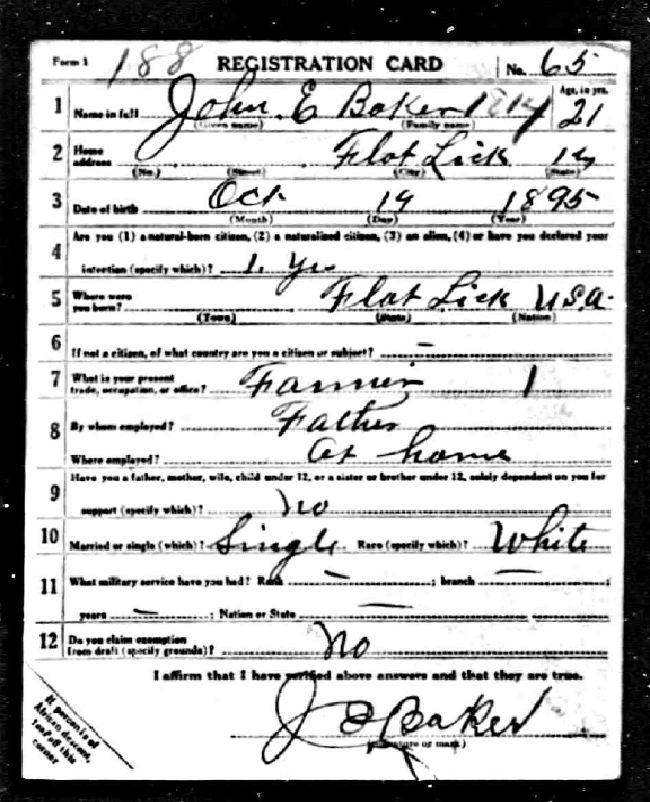 Form 1 188 REGISTRATION CARD No. 65
1 Name in full John E Baker Age, in yrs. 21
(Given name) (Family name)
2 Home address Flat Lick Ky
(No.) (Street) (City) (State)
3 Date of birth Oct 19 1895
(Month) (Day) (Year)
4 Are you (1) a natural-born citizen, (2) a naturalized citizen, (3) an alien, (4) or have you declared your
intention (specify which)? 1. Yes
5 Where were you born? Flat Lick U.S.A.
(Town) (State) (Nation)
6 If not a citizen, of what country are you a citizen or subject? —
7 What is your present trade, occupation, or office? Farmer 1
8 By whom employed? Father
Where employed? At home
9 Have you a father, mother, wife, child under 12, or a sister or brother under 12, solely dependent on you for
support (specify which)? No
10 Married or single (which)? Single Race (specify which)? White
11 What military service have you had? Rank — ; branch — ;
years — ; Nation or State —
12 Do you claim exemption from draft (specify grounds)? No
I affirm that I have verified above answers and that they are true.
J E Baker
(Signature or mark)
If person is of
African descent,
tear off this
corner